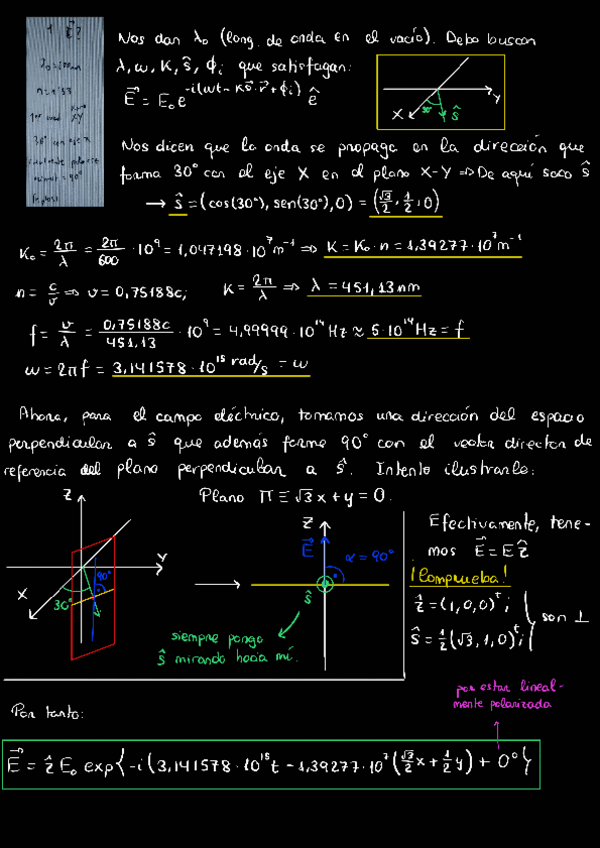 Nos dan λ₀ (long. de onda en el vacío). Debo buscar
λ, ω, K, ŝ, φᵢ que satisfagan:
E⃗ = E₀e^{-i(ωt - Kŝ·r⃗ + φᵢ)} ê
X
Y
ŝ
Nos dicen que la onda se propaga en la dirección que
forma 30° con el eje X en el plano X-Y ⇒ De aquí saco ŝ
→ ŝ = (cos(30°), sen(30°), 0) = (√3/2, 1/2, 0)
K₀ = 2π/λ = 2π/600 · 10⁹ = 1,047198 · 10⁷ m⁻¹ ⇒ K = K₀ · n = 1,39277 · 10⁷ m⁻¹
n = c/v ⇒ v = 0,75188c; K = 2π/λ ⇒ λ = 451,13 nm
f = v/λ = 0,75188c/451,13 · 10⁹ = 4,99999 · 10¹⁴ Hz ≈ 5·10¹⁴ Hz = f
ω = 2πf = 3,141578 · 10¹⁵ rad/s = ω
Ahora, para el campo eléctrico, tomamos una dirección del espacio
perpendicular a ŝ que además forme 90° con el vector director de
referencia del plano perpendicular a ŝ. Intento ilustrarlo:
Plano Π ≡ √3x + y = 0.
Z
Y
X
30°
90°
Z
E⃗
α = 90°
ŝ
siempre pongo
ŝ mirando hacia mí.
Efectivamente, tene-
mos E⃗ = E ẑ
¡Comprueba!
ẑ = (1, 0, 0)ᵗ;
ŝ = 1/2(√3, 1, 0)ᵗ;
son ⊥
Por tanto:
por estar lineal-
mente polarizada
E⃗ = ẑ E₀ exp{-i(3,141578 · 10¹⁵t - 1,39277 · 10⁷(√3/2x + 1/2y) + 0°}